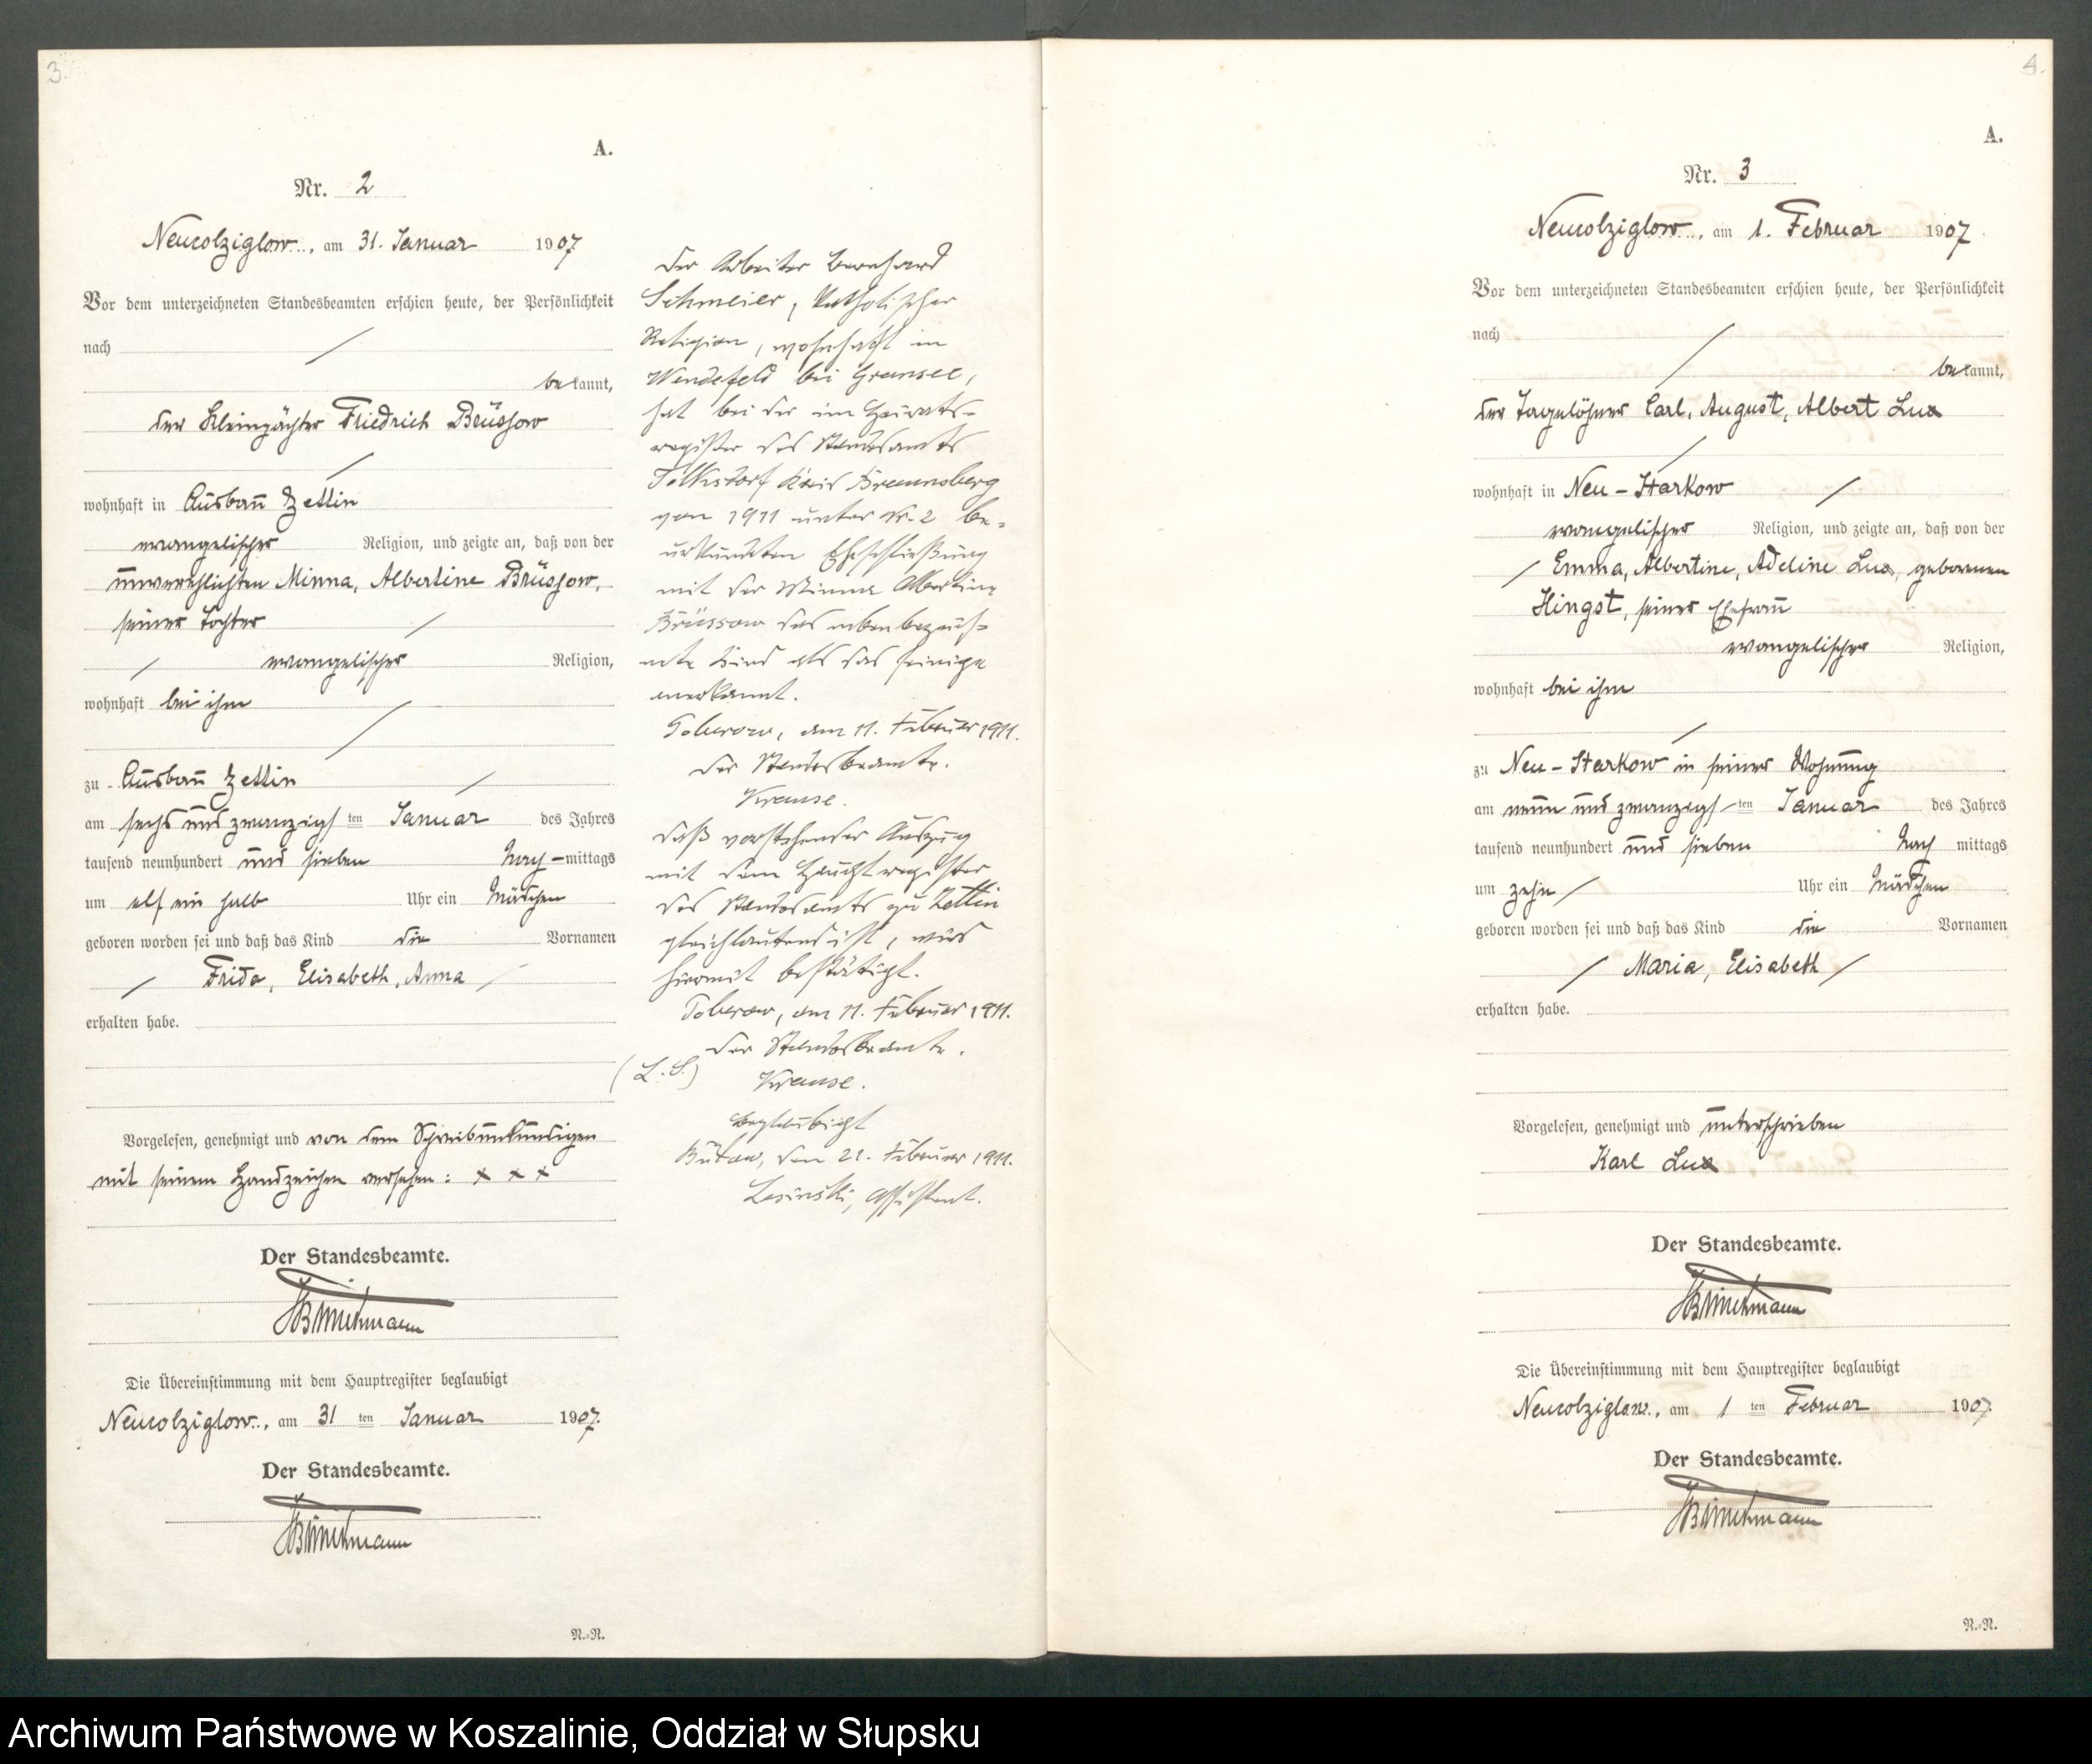 3.
A.
Nr. 2
Neucolziglow, am 31. Januar 1907
Vor dem unterzeichneten Standesbeamten erschien heute, der Persönlichkeit
nach
bekannt,
der Kleinpächter Friedrich Brüssow
wohnhaft in Ausbau Zettin
evangelischer Religion, und zeigte an, daß von der
unverehelichten Minna, Albertine Brüssow,
seiner Tochter
evangelischer Religion,
wohnhaft bei ihm
zu Ausbau Zettin
am sechs und zwanzigsten Januar des Jahres
tausend neunhundert und sieben Nach-mittags
um elf ein halb Uhr ein Mädchen
geboren worden sei und daß das Kind die Vornamen
Frida, Elisabeth, Anna
erhalten habe.
Vorgelesen, genehmigt und von dem Schreibunkundigen
mit seinem Handzeichen versehen: x x x
Der Standesbeamte.
Die Übereinstimmung mit dem Hauptregister beglaubigt
Neucolziglow, am 31 ten Januar 1907.
Der Standesbeamte.
N.=N.
Der Arbeiter Bernhard
Schmeier, katholischer
Religion, wohnhaft in
bei Gransee,
hat bei der im Heirats-
register des Standesamts
Tolksdorf Kreis Braunsberg
von 1911 unter Nr. 2 be-
urkundeten Eheschließung
mit der Minna Albertine
Brüssow das nebenbezeich-
nete Kind als das seinige
anerkannt.
am 11. Februar 1911.
Der Standesbeamte.
Krause.
Daß vorstehender Auszug
mit dem Hauptregister
des Standesamts zu Zettin
gleichlautend ist, wird
hiermit bestätigt.
am 11. Februar 1911.
Der Standesbeamte.
(L. S.) Krause.
Beglaubigt
Bütow, den 21. Februar 1911.
Lesinski, Assistent.
4.
A.
Nr. 3
Neucolziglow, am 1. Februar 1907
Vor dem unterzeichneten Standesbeamten erschien heute, der Persönlichkeit
nach
bekannt,
der Tagelöhner Carl, August, Albert Lux
wohnhaft in Neu-Starkow
evangelischer Religion, und zeigte an, daß von der
Emma, Albertine, Adeline Lux, geborenen
Hingst, seiner Ehefrau
evangelischer Religion,
wohnhaft bei ihm
zu Neu-Starkow in seiner Wohnung
am neun und zwanzigsten Januar des Jahres
tausend neunhundert und sieben Nach mittags
um zehn Uhr ein Mädchen
geboren worden sei und daß das Kind die Vornamen
Maria, Elisabeth
erhalten habe.
Vorgelesen, genehmigt und unterschrieben
Karl Lux
Der Standesbeamte.
Die Übereinstimmung mit dem Hauptregister beglaubigt
Neucolziglow, am 1 ten Februar 1907.
Der Standesbeamte.
N.=N.
Archiwum Państwowe w Koszalinie, Oddział w Słupsku